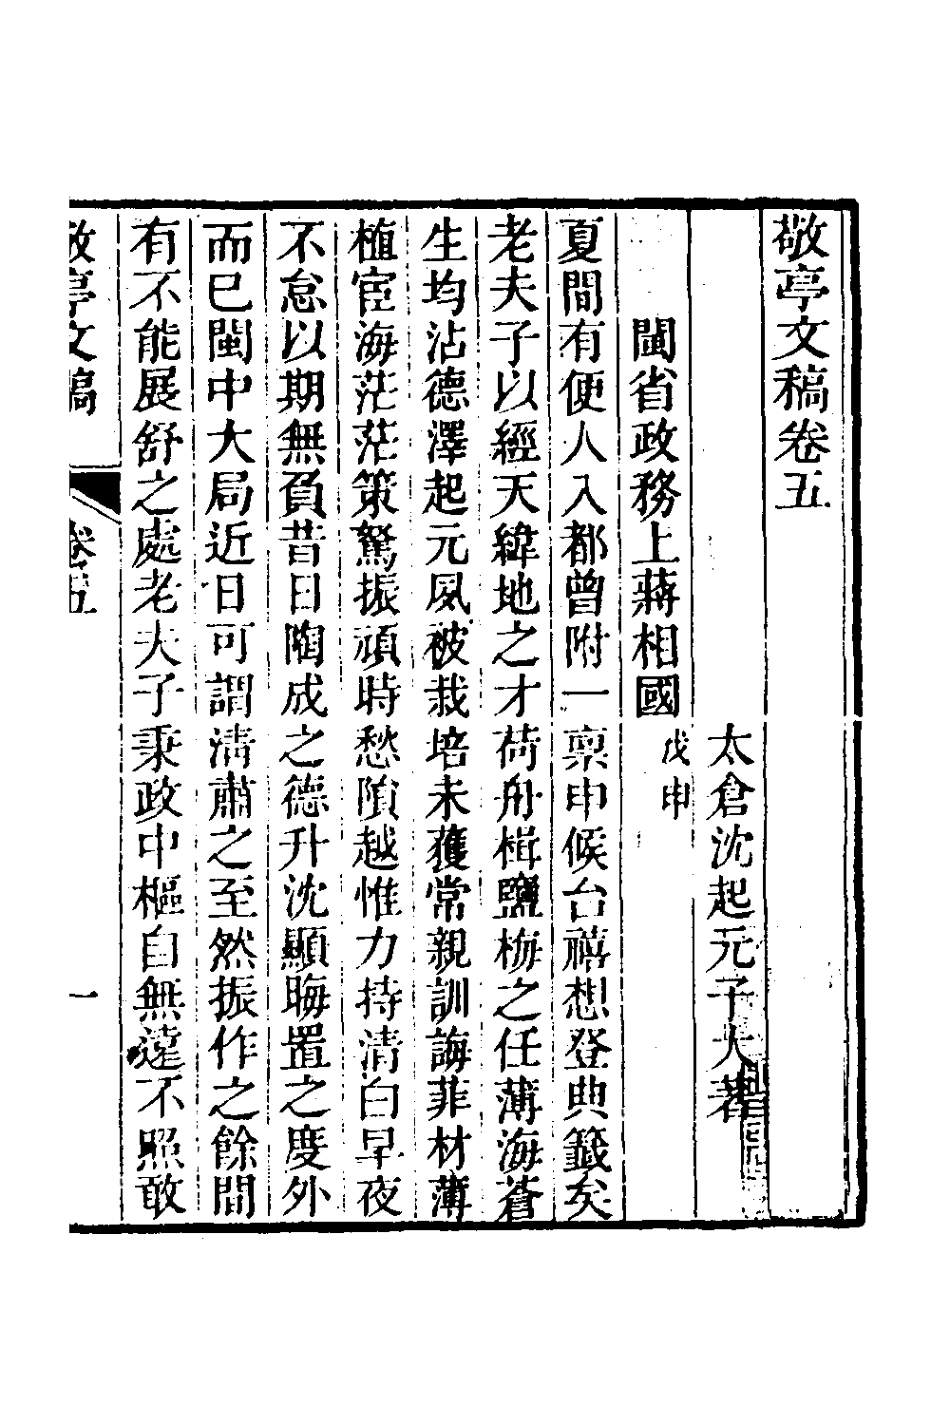 敬亭文稿卷五
太倉沈起元子大著
閩省政務上蔣相國 戊申
夏間有便人入都曾附一稟申候台禧想登典籤矣
老夫子以經天緯地之才荷舟楫鹽梅之任薄海蒼
生均沾德澤起元夙被栽培未獲常親訓誨菲材薄
植宦海茫茫策駑振頑時愁隕越惟力持清白早夜
不怠以期無負昔日陶成之德升沈顯晦置之度外
而已閩中大局近日可謂清肅之至然振作之餘間
有不能展舒之處老夫子秉政中樞自無遠不照敢
敬亭文稿 卷五 一